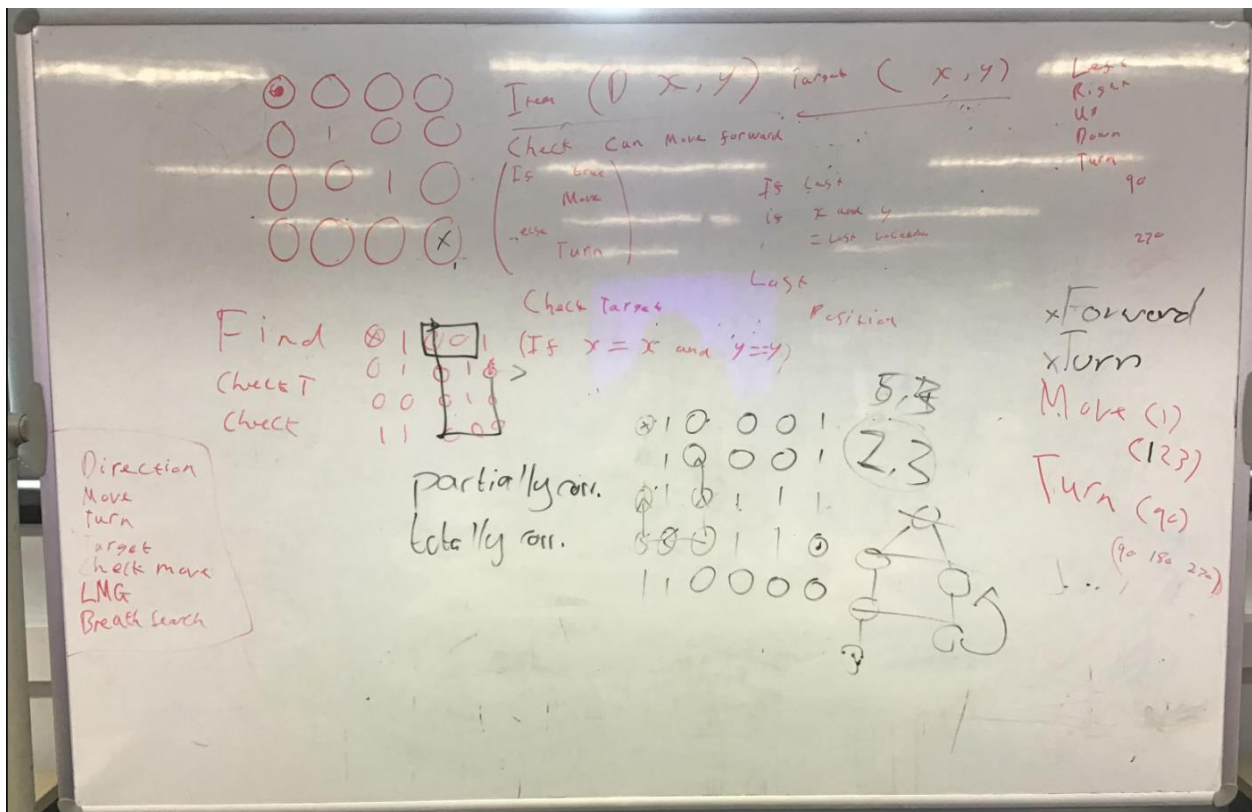 0 0 0 0
0 1 0 0
0 0 1 0
0 0 0 X
Item (D x, y) Target ( x, y)
Check Can Move forward
If true
Move
else
Turn
If Last
is x and y
= Last Location
Left
Right
Up
Down
Turn
90
270
Last
Position
Check Target
(If x = x and y == y)
Find
Check T
Check
X 1 0 0 1
0 1 0 1
0 0 0 1 0
1 1 0 0 0
Direction
Move
Turn
Target
Check move
LMG
Breath Search
partially corr.
totally corr.
X 1 0 0 0 1
1 0 0 0 1
1 1 1 1
1 1
1 1 0 0 0 0
2,3
xForward
xTurn
Move (1)
(123)
Turn (90)
(90 180 270)